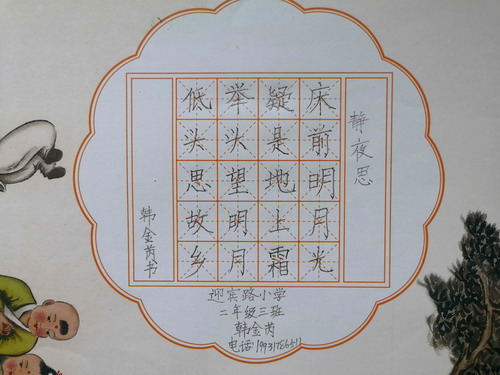 静夜思
床前明月光
疑是地上霜
举头望明月
低头思故乡
韩金芮书
迎宾路小学
二年级三班
韩金芮
电话: